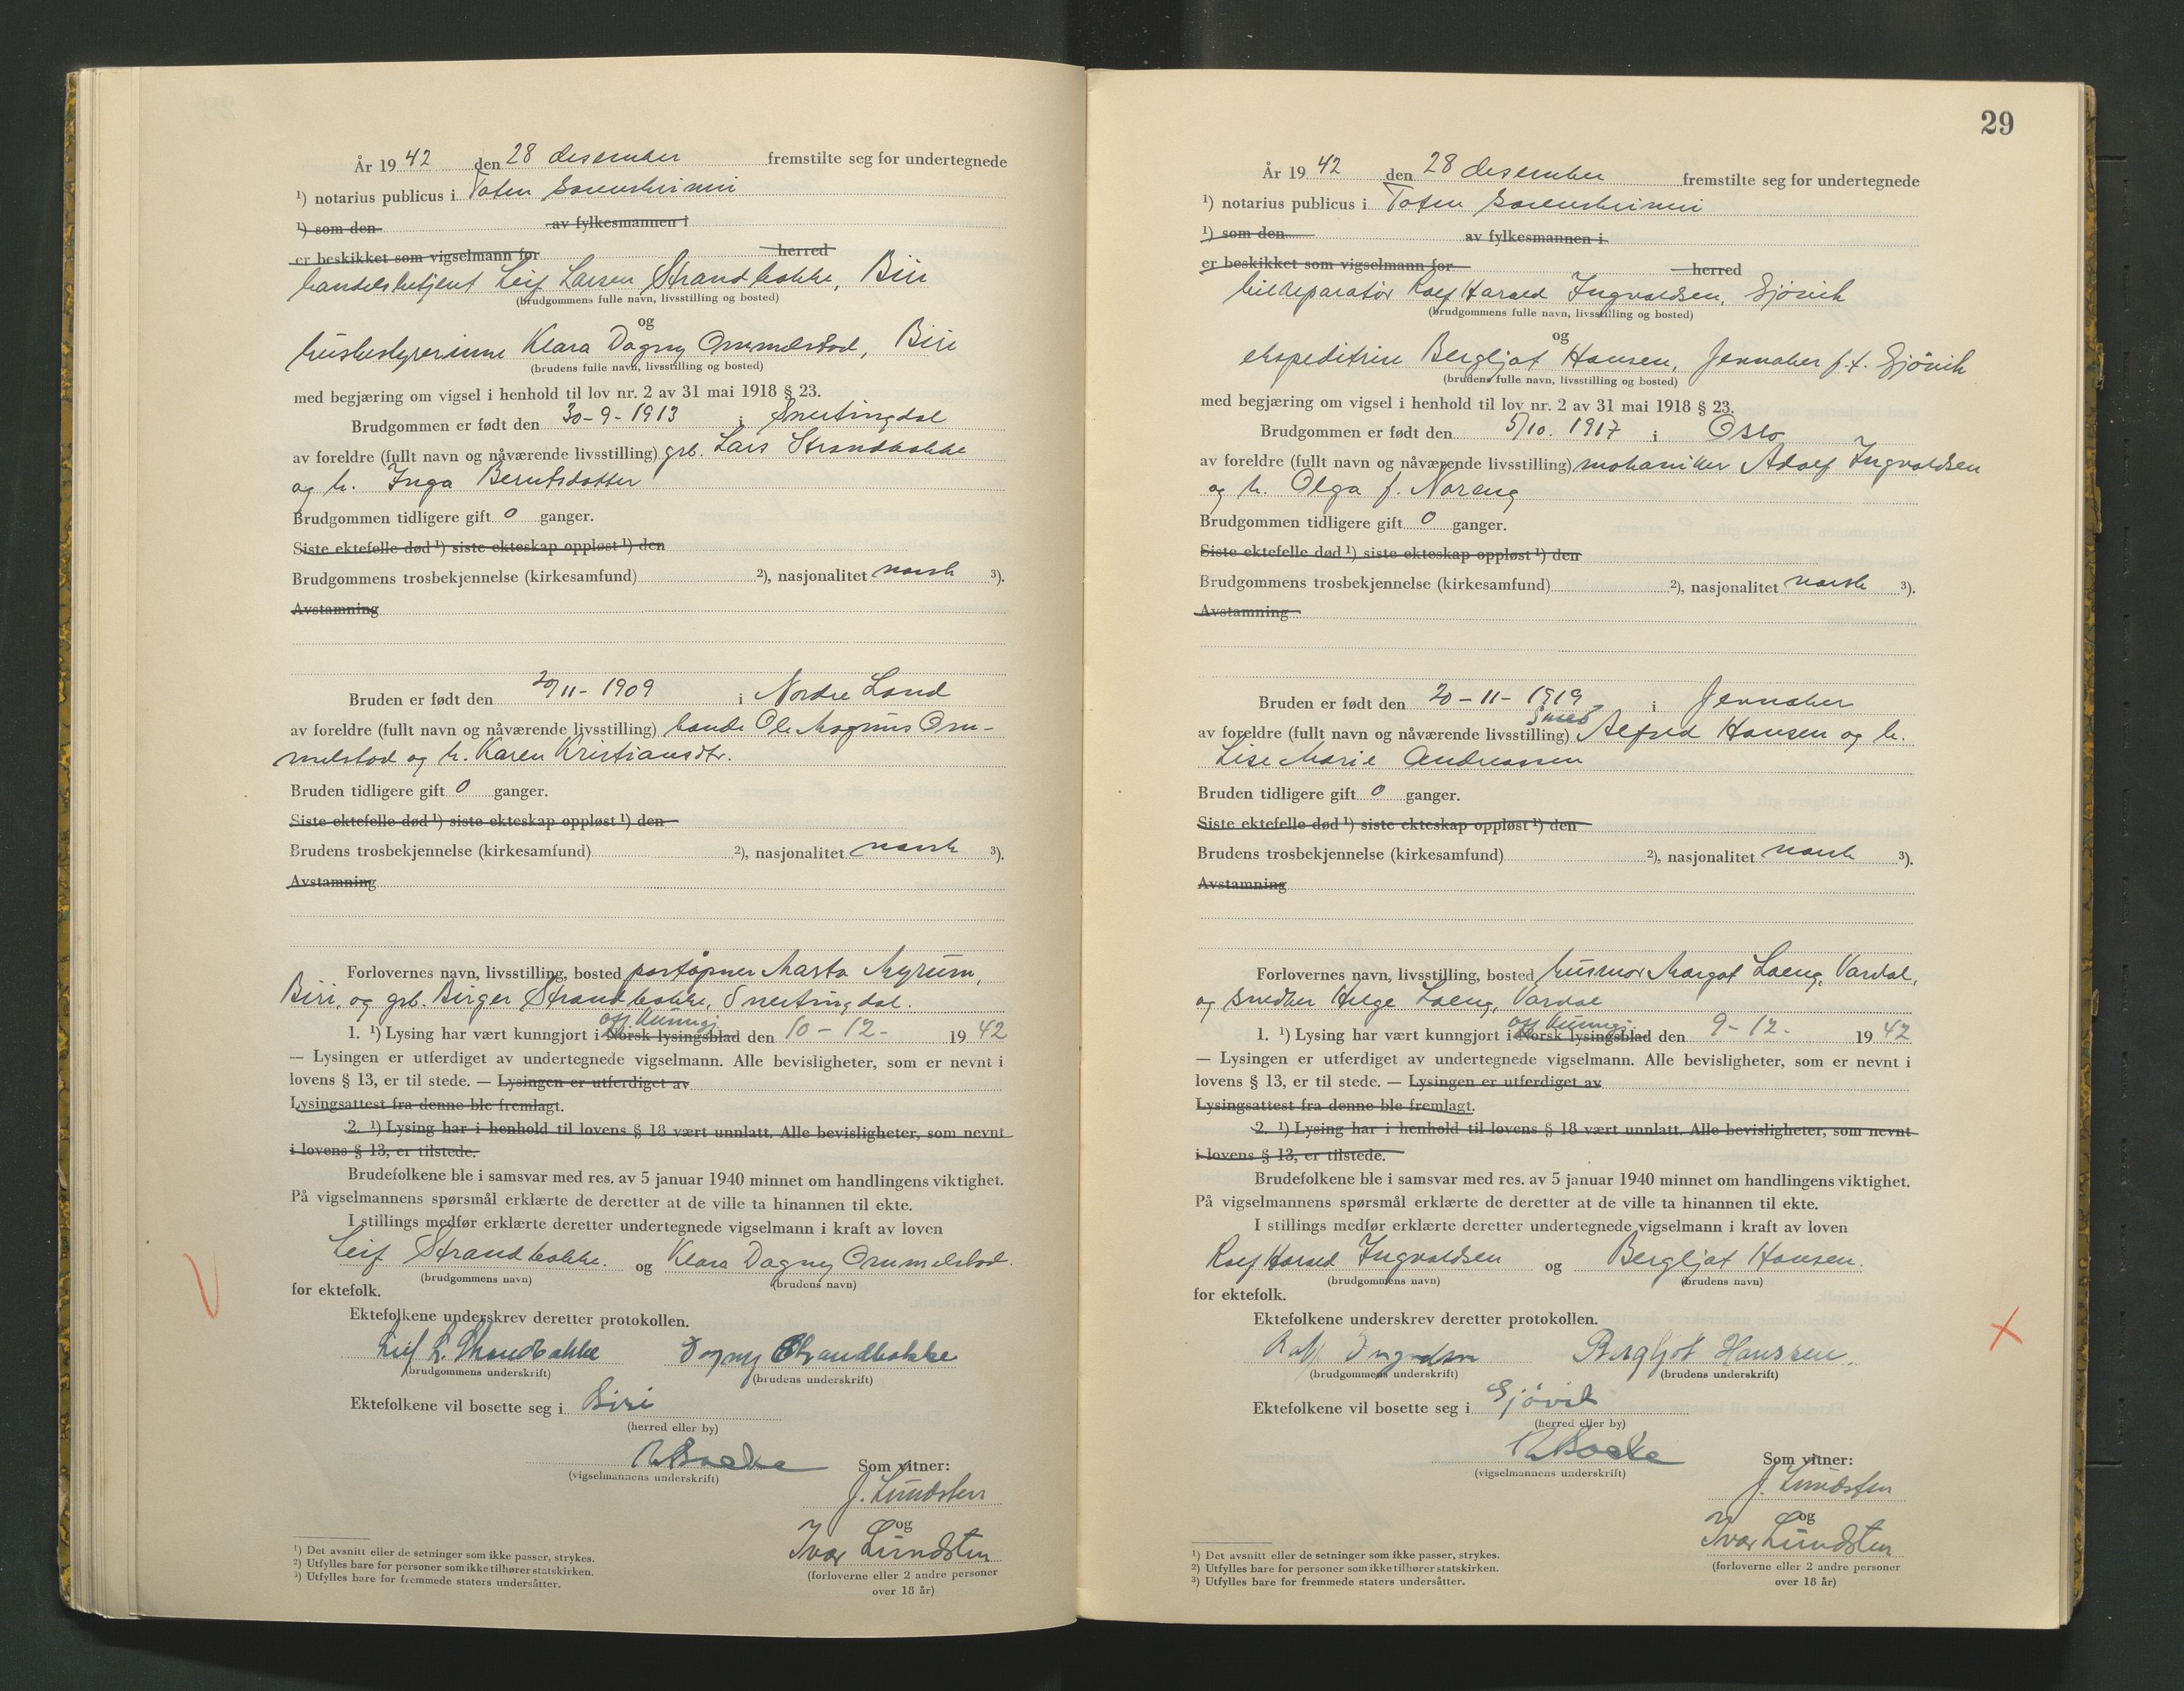 År 19 42 den 28 desember fremstilte seg for undertegnede
¹) notarius publicus i Toten Sorenskriveri
¹) som den av fylkesmannen i
er beskikket som vigselmann for herred
handelsbetjent Leif Larsen Strandbakke, Biri
(brudgommens fulle navn, livsstilling og bosted)
og
husbestyrerinne Klara Dagny Ommelstad, Biri
(brudens fulle navn, livsstilling og bosted)
med begjæring om vigsel i henhold til lov nr. 2 av 31 mai 1918 § 23.
Brudgommen er født den 30-9-1913 i Snertingdal
av foreldre (fullt navn og nåværende livsstilling) grb. Lars Strandbakke
og h. Inga Berntsdatter
Brudgommen tidligere gift 0 ganger.
Siste ektefelle død ¹) siste ekteskap oppløst ¹) den
Brudgommens trosbekjennelse (kirkesamfund) ²), nasjonalitet norsk ³).
Avstamning
Bruden er født den 20/11-1909 i Nordre Land
av foreldre (fullt navn og nåværende livsstilling) bonde Ole Magnus Om-
melstad og h. Karen Kristiansdtr.
Bruden tidligere gift 0 ganger.
Siste ektefelle død ¹) siste ekteskap oppløst ¹) den
Brudens trosbekjennelse (kirkesamfund) ²), nasjonalitet norsk ³).
Avstamning
Forlovernes navn, livsstilling, bosted poståpner Marta Myrum,
Biri, og grb. Birger Strandbakke, Snertingdal.
off. kunngj.
1. ¹) Lysing har vært kunngjort i Norsk lysingsblad den 10-12- 19 42
— Lysingen er utferdiget av undertegnede vigselmann. Alle bevisligheter, som er nevnt i
lovens § 13, er til stede. — Lysingen er utferdiget av
Lysingsattest fra denne ble fremlagt.
2. ¹) Lysing har i henhold til lovens § 18 vært unnlatt. Alle bevisligheter, som nevnt
i lovens § 13, er tilstede.
Brudefolkene ble i samsvar med res. av 5 januar 1940 minnet om handlingens viktighet.
På vigselmannens spørsmål erklærte de deretter at de ville ta hinannen til ekte.
I stillings medfør erklærte deretter undertegnede vigselmann i kraft av loven
Leif Strandbakke. og Klara Dagny Ommelstad.
(brudgommens navn) (brudens navn)
for ektefolk.
Ektefolkene underskrev deretter protokollen.
Leif L. Strandbakke Dagny Strandbakke
(brudgommens underskrift) (brudens underskrift)
Ektefolkene vil bosette seg i Biri
(herred eller by)
(vigselmannens underskrift) Som vitner:
J. Lundsten
og
Ivar Lundsten
(forloverne eller 2 andre personer
over 18 år)
¹) Det avsnitt eller de setninger som ikke passer, strykes.
²) Utfylles bare for personer som ikke tilhører statskirken.
³) Utfylles bare for fremmede staters undersåtter.
29
År 19 42 den 28 desember fremstilte seg for undertegnede
¹) notarius publicus i Toten Sorenskriveri
¹) som den av fylkesmannen i
er beskikket som vigselmann for herred
bilreparatør Rolf Harald Ingvaldsen, Gjövik
(brudgommens fulle navn, livsstilling og bosted)
og
ekspeditrise Bergljot Hansen, Jevnaker f.t. Gjövik
(brudens fulle navn, livsstilling og bosted)
med begjæring om vigsel i henhold til lov nr. 2 av 31 mai 1918 § 23.
Brudgommen er født den 5/10. 1917 i Oslo
av foreldre (fullt navn og nåværende livsstilling) mekaniker Adolf Ingvaldsen
og h. Olga f. Noreng
Brudgommen tidligere gift 0 ganger.
Siste ektefelle død ¹) siste ekteskap oppløst ¹) den
Brudgommens trosbekjennelse (kirkesamfund) ²), nasjonalitet norsk ³).
Avstamning
Bruden er født den 20-11-1919 i Jevnaker
smed
av foreldre (fullt navn og nåværende livsstilling) Alfred Hansen og h.
Lise Marie Andreassen
Bruden tidligere gift 0 ganger.
Siste ektefelle død ¹) siste ekteskap oppløst ¹) den
Brudens trosbekjennelse (kirkesamfund) ²), nasjonalitet norsk ³).
Avstamning
Forlovernes navn, livsstilling, bosted husmor Margot Loeng, Vardal,
og snedker Helge Loeng, Vardal
off. kunngj.
1. ¹) Lysing har vært kunngjort i Norsk lysingsblad den 9-12- 19 42
— Lysingen er utferdiget av undertegnede vigselmann. Alle bevisligheter, som er nevnt i
lovens § 13, er til stede. — Lysingen er utferdiget av
Lysingsattest fra denne ble fremlagt.
2. ¹) Lysing har i henhold til lovens § 18 vært unnlatt. Alle bevisligheter, som nevnt
i lovens § 13, er tilstede.
Brudefolkene ble i samsvar med res. av 5 januar 1940 minnet om handlingens viktighet.
På vigselmannens spørsmål erklærte de deretter at de ville ta hinannen til ekte.
I stillings medfør erklærte deretter undertegnede vigselmann i kraft av loven
Rolf Harald Ingvaldsen og Bergljot Hansen.
(brudgommens navn) (brudens navn)
for ektefolk.
Ektefolkene underskrev deretter protokollen.
Bergljot Hanssen.
(brudgommens underskrift) (brudens underskrift)
Ektefolkene vil bosette seg i Gjövik
(herred eller by)
(vigselmannens underskrift) Som vitner:
J. Lundsten
og
Ivar Lundsten
(forloverne eller 2 andre personer
over 18 år)
¹) Det avsnitt eller de setninger som ikke passer, strykes.
²) Utfylles bare for personer som ikke tilhører statskirken.
³) Utfylles bare for fremmede staters undersåtter.